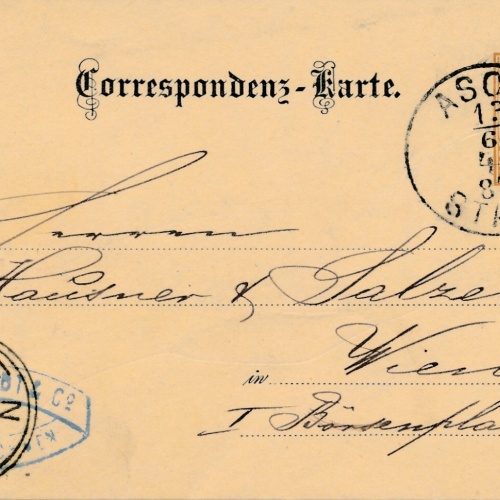 Correspondenz-Karte.
ASC
13
6
4
8
ST
Herren
Hausner & Salze
Wien
in
I Börsenpla
& Co
N